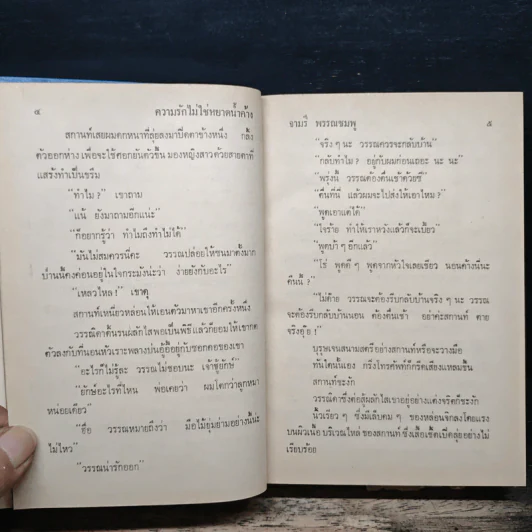 ๔ ความรักไม่ใช่หยาดน้ำค้าง
สกานท์เสยผมดกหนาที่ลุ่ยลงมาปิดตาข้างหนึ่ง กลิ้ง
ตัวออกห่าง เพื่อจะใช้ศอกยันตัวขึ้น มองหญิงสาวด้วยสายตาที่
แสร้งทำเป็นขรึม
“ทำไม ?” เขาถาม
“แน่ ยังมาถามอีกแน่ะ”
“ก็อยากรู้ว่า ทำไมถึงทำไม่ได้”
“มันไม่สมควรน่ะ วรรณปล่อยให้ชนมาตั้งมาก
บ้านนี้คงค่อนอยู่ในใจกระมังน่ะว่า ง่ายยังกับอะไร”
“เหลวไหล !” เขาดุ
สกานท์เหนี่ยวหล่อนให้เอนตัวมาหาเขาอีกครั้งหนึ่ง
วรรณิดาดิ้นรนผลักไสพอเป็นพิธีแล้วก็ยอมให้เขากด
ตัวลงกับที่นอนหัวเราะพลางบ่นอู้อี้อยู่กับซอกคอของเขา
“อะไรก็ไม่รู้ละ วรรณไม่ชอบนะ เจ้าชู้ยักษ์”
“ยักษ์อะไรที่ไหน พ่อเคยว่า ผมโตกว่าลูกหมา
หน่อยเดียว”
“ฮื่อ วรรณหมายถึงว่า มือไม้ยุ่มย่ามอย่างนี้น่ะ
ไม่ไหว”
“วรรณน่ารักออก”
อาบรี พรรณชมพู ๕
“จริง ๆ นะ วรรณควรจะกลับบ้าน”
“กลับทำไม ? อยู่กับผมก่อนเถอะ นะ นะ”
“พรุ่งนี้ วรรณต้องตื่นเช้าด้วยซี”
“ตื่นที่นี่ แล้วผมจะไปส่งให้เอาไหม ?”
“พูดเอาแต่ได้”
“ใจร้าย ทำให้เราหวังแล้วก็จะเบี้ยว”
“พูดบ้า ๆ อีกแล้ว”
“โธ่ พูดดี ๆ พูดจากหัวใจเลยเชียว นอนค้างนี่นะ
คืนนี้ ?”
“ไม่ค้าย วรรณจะต้องรีบกลับบ้านจริง ๆ นะ วรรณ
จะต้องรีบกลับบ้านนอน ต้องตื่นเช้า อย่าค่ะสกานท์ ตาย
จริงอุ๊ย !”
บุรุษเจนสนามสตรีอย่างสกานท์หรือจะวางมือ
ทันใดนั้นเอง กริ่งโทรศัพท์ก็กรีดเสียงแหลมขึ้น
สกานท์ชะงัก
วรรณิดาซึ่งต่อสู้ผลักไสเขาอยู่อย่างแค่งจริตก็ชะงัก
นิ้วเรียว ๆ ซึ่งมีเล็บคม ๆ ของหล่อนจิกลงโดยแรง
บนผิวเนื้อ บริเวณไหล่ ของสกานท์ ซึ่งเสื้อเชิ้ตเปิดลุ่ยอย่างไม่
เรียบร้อย